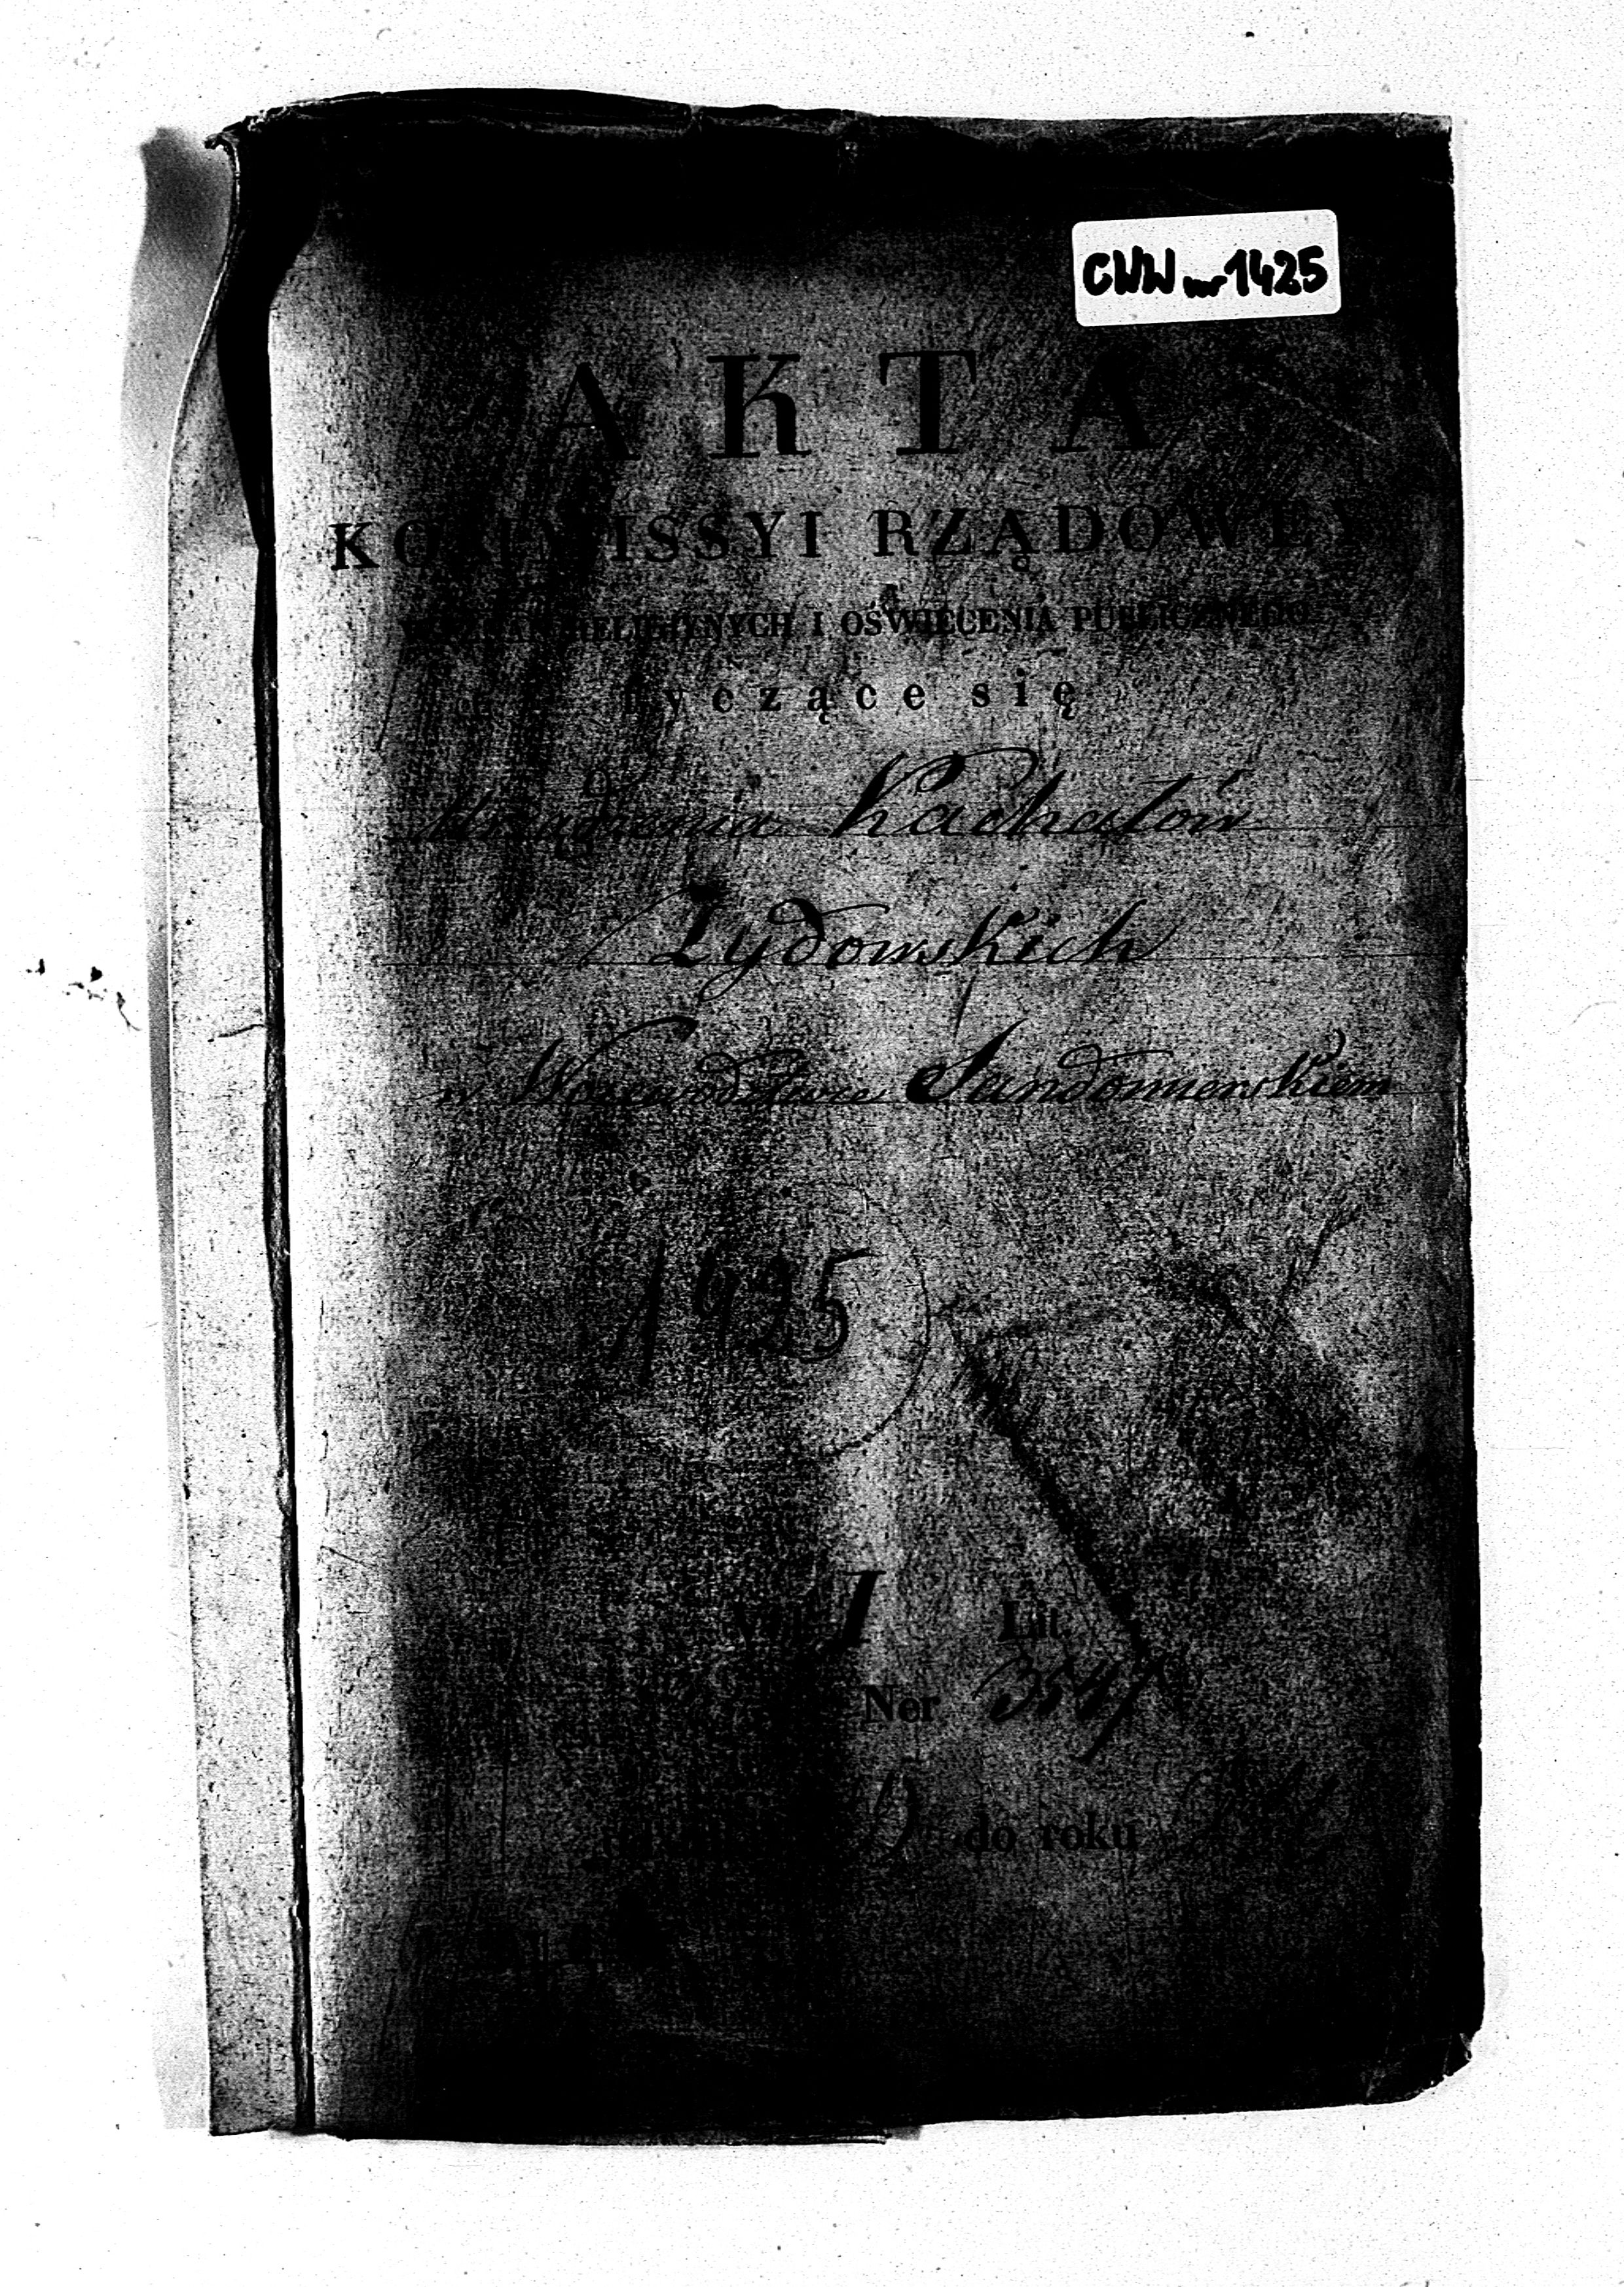 CWW nr 1425
AKTA
KOMMISSYI RZĄDOWEY
WYZNAŃ RELIGIYNYCH I OŚWIECENIA PUBLICZNEGO
tyczące się
Urządzenia Kachałów
Żydowskich
w Woiewodztwie Sandomierskiem
1425
Vol. I Lit.
Ner 3547
do roku